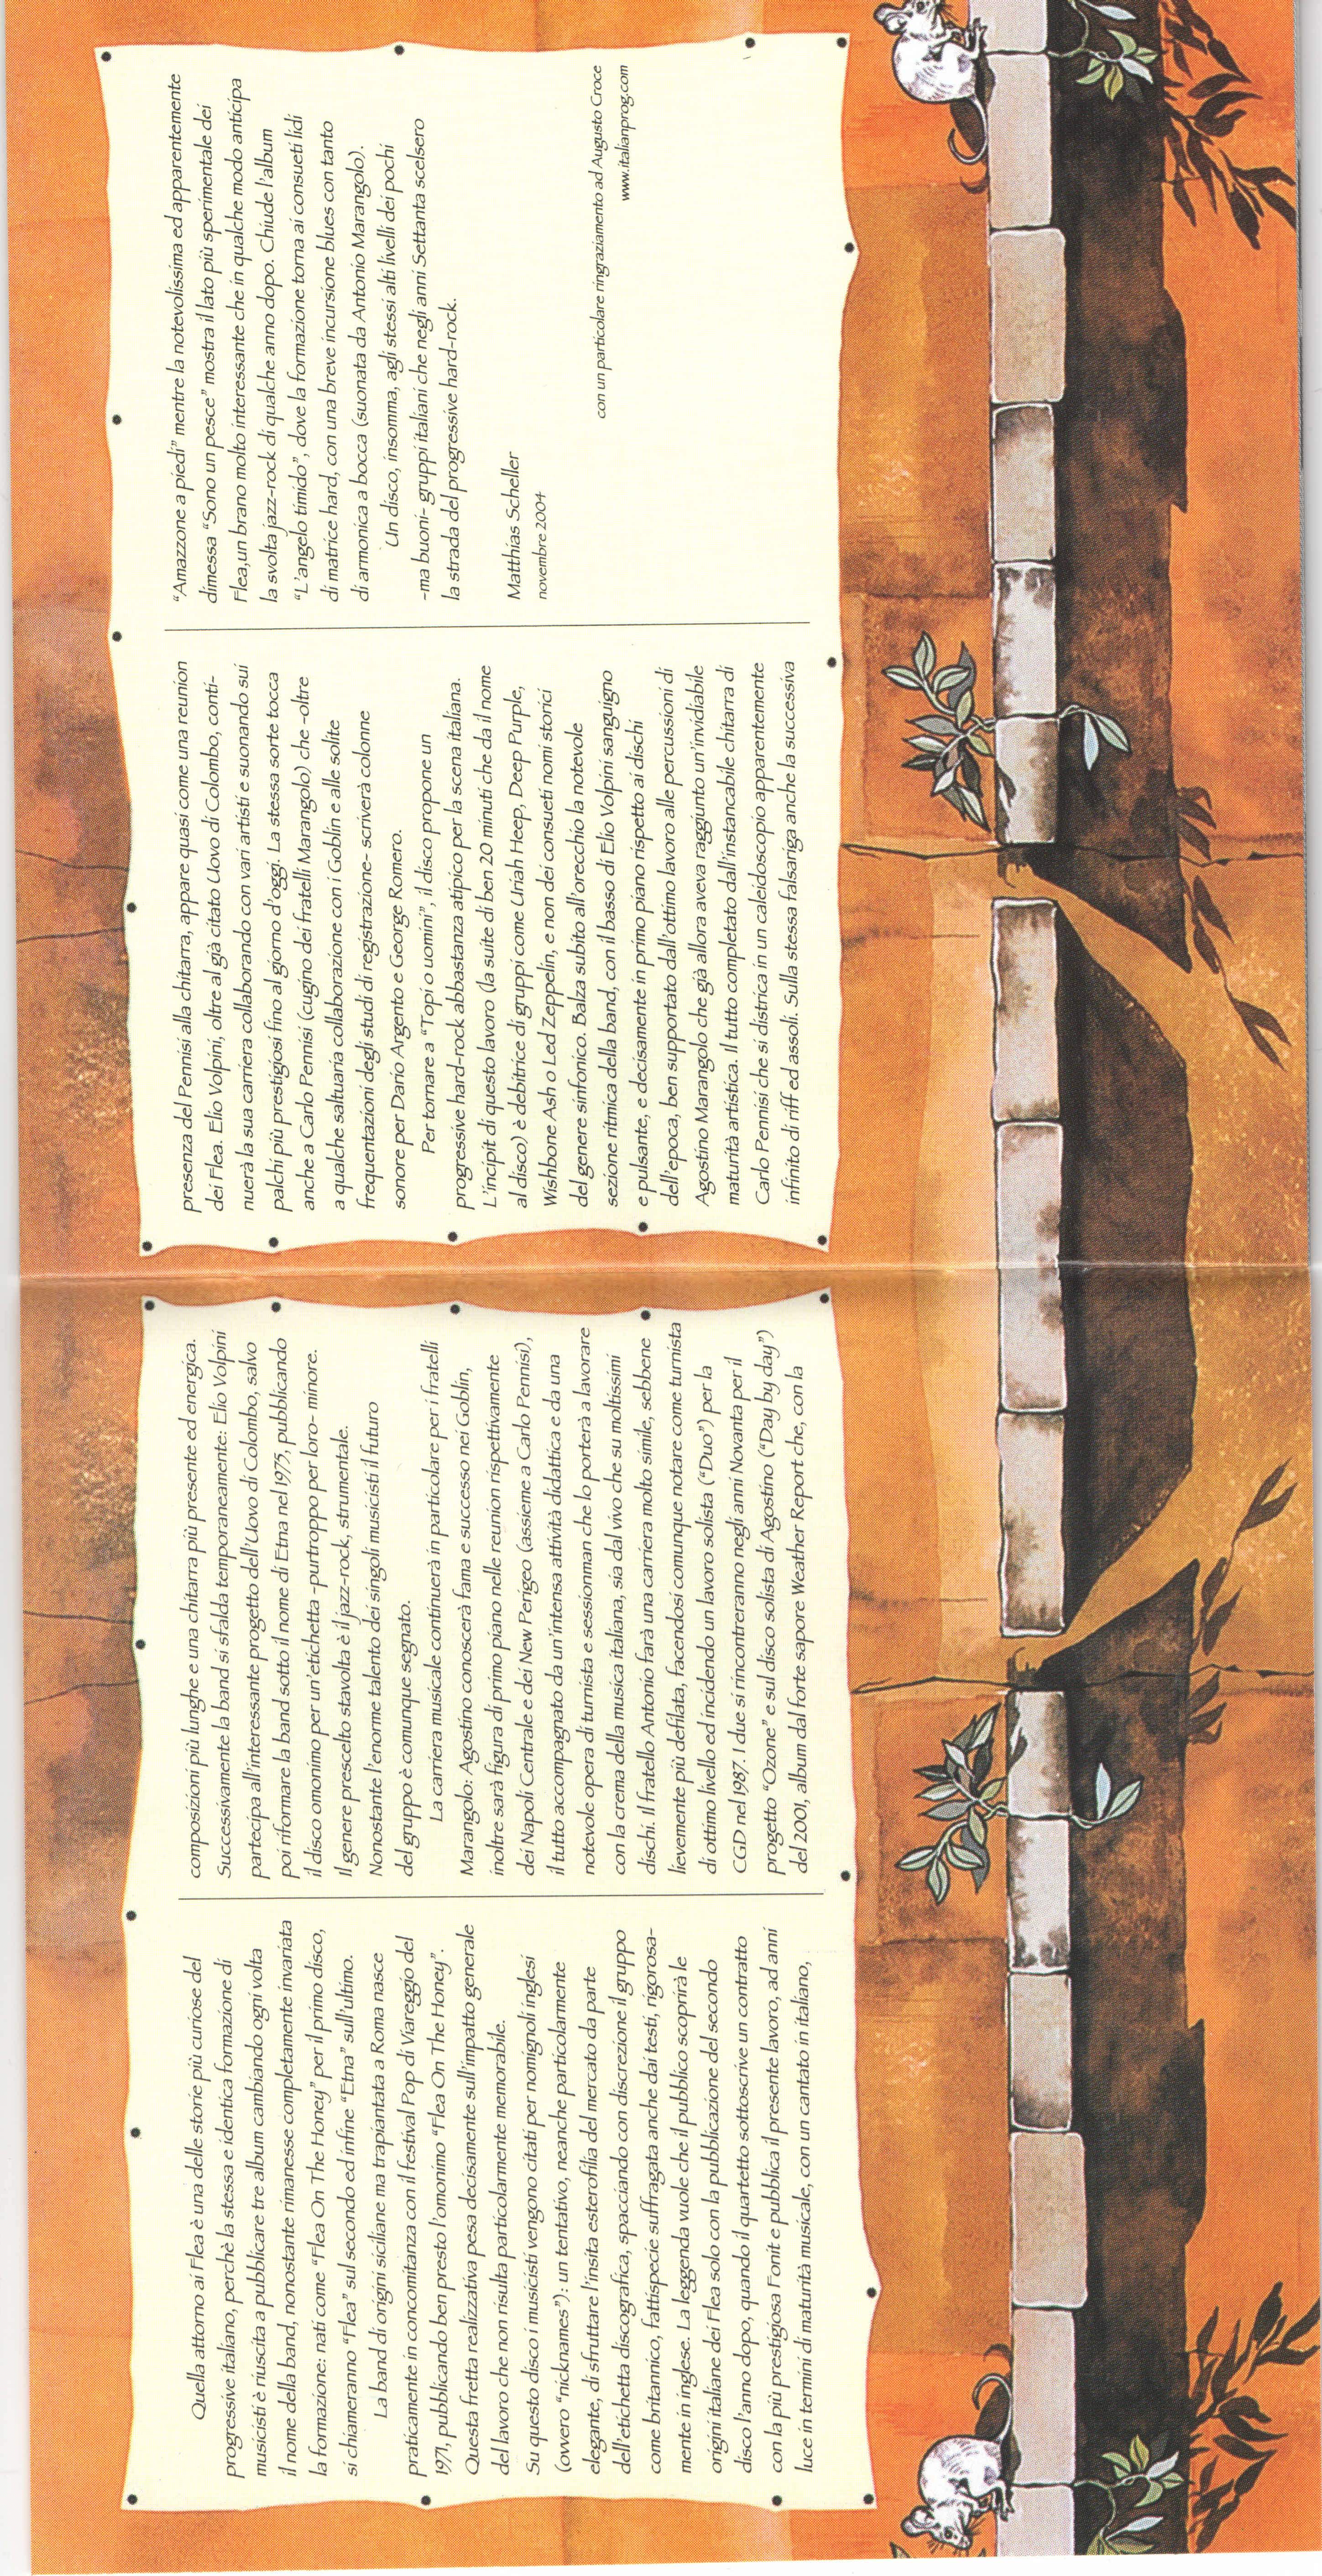 Quella attorno ai Flea è una delle storie più curiose del
progressive italiano, perchè la stessa e identica formazione di
musicisti è riuscita a pubblicare tre album cambiando ogni volta
il nome della band, nonostante rimanesse completamente invariata
la formazione: nati come "Flea On The Honey" per il primo disco,
si chiameranno "Flea" sul secondo ed infine "Etna" sull'ultimo.
La band di origini siciliane ma trapiantata a Roma nasce
praticamente in concomitanza con il festival Pop di Viareggio del
1971, pubblicando ben presto l'omonimo "Flea On The Honey".
Questa fretta realizzativa pesa decisamente sull'impatto generale
del lavoro che non risulta particolarmente memorabile.
Su questo disco i musicisti vengono citati per nomignoli inglesi
(ovvero "nicknames"): un tentativo, neanche particolarmente
elegante, di sfruttare l'insita esterofilia del mercato da parte
dell'etichetta discografica, spacciando con discrezione il gruppo
come britannico, fattispecie suffragata anche dai testi, rigorosa-
mente in inglese. La leggenda vuole che il pubblico scoprirà le
origini italiane dei Flea solo con la pubblicazione del secondo
disco l'anno dopo, quando il quartetto sottoscrive un contratto
con la più prestigiosa Fonit e pubblica il presente lavoro, ad anni
luce in termini di maturità musicale, con un cantato in italiano,
composizioni più lunghe e una chitarra più presente ed energica.
Successivamente la band si sfalda temporaneamente: Elio Volpini
partecipa all'interessante progetto dell'Uovo di Colombo, salvo
poi riformare la band sotto il nome di Etna nel 1975, pubblicando
il disco omonimo per un'etichetta -purtroppo per loro- minore.
Il genere prescelto stavolta è il jazz-rock, strumentale.
Nonostante l'enorme talento dei singoli musicisti il futuro
del gruppo è comunque segnato.
La carriera musicale continuerà in particolare per i fratelli
Marangolo: Agostino conoscerà fama e successo nei Goblin,
inoltre sarà figura di primo piano nelle reunion rispettivamente
dei Napoli Centrale e dei New Perigeo (assieme a Carlo Pennisi),
il tutto accompagnato da un'intensa attività didattica e da una
notevole opera di turnista e sessionman che lo porterà a lavorare
con la crema della musica italiana, sia dal vivo che su moltissimi
dischi. Il fratello Antonio farà una carriera molto simile, sebbene
lievemente più defilata, facendosi comunque notare come turnista
di ottimo livello ed incidendo un lavoro solista ("Duo") per la
CGD nel 1987. I due si rincontreranno negli anni Novanta per il
progetto "Ozone" e sul disco solista di Agostino ("Day by day")
del 2001, album dal forte sapore Weather Report che, con la
presenza del Pennisi alla chitarra, appare quasi come una reunion
dei Flea. Elio Volpini, oltre al già citato Uovo di Colombo, conti-
nuerà la sua carriera collaborando con vari artisti e suonando sui
palchi più prestigiosi fino al giorno d'oggi. La stessa sorte tocca
anche a Carlo Pennisi (cugino dei fratelli Marangolo) che -oltre
a qualche saltuaria collaborazione con i Goblin e alle solite
frequentazioni degli studi di registrazione- scriverà colonne
sonore per Dario Argento e George Romero.
Per tornare a "Topi o uomini", il disco propone un
progressive hard-rock abbastanza atipico per la scena italiana.
L'incipit di questo lavoro (la suite di ben 20 minuti che da il nome
al disco) è debitrice di gruppi come Uriah Heep, Deep Purple,
Wishbone Ash o Led Zeppelin, e non dei consueti nomi storici
del genere sinfonico. Balza subito all'orecchio la notevole
sezione ritmica della band, con il basso di Elio Volpini sanguigno
e pulsante, e decisamente in primo piano rispetto ai dischi
dell'epoca, ben supportato dall'ottimo lavoro alle percussioni di
Agostino Marangolo che già allora aveva raggiunto un'invidiabile
maturità artistica. Il tutto completato dall'instancabile chitarra di
Carlo Pennisi che si districa in un caleidoscopio apparentemente
infinito di riff ed assoli. Sulla stessa falsariga anche la successiva
"Amazzone a piedi" mentre la notevolissima ed apparentemente
dimessa "Sono un pesce" mostra il lato più sperimentale dei
Flea,un brano molto interessante che in qualche modo anticipa
la svolta jazz-rock di qualche anno dopo. Chiude l'album
"L'angelo timido", dove la formazione torna ai consueti lidi
di matrice hard, con una breve incursione blues con tanto
di armonica a bocca (suonata da Antonio Marangolo).
Un disco, insomma, agli stessi alti livelli dei pochi
-ma buoni- gruppi italiani che negli anni Settanta scelsero
la strada del progressive hard-rock.
Matthias Scheller
novembre 2004
con un particolare ringraziamento ad Augusto Croce
www.italianprog.com